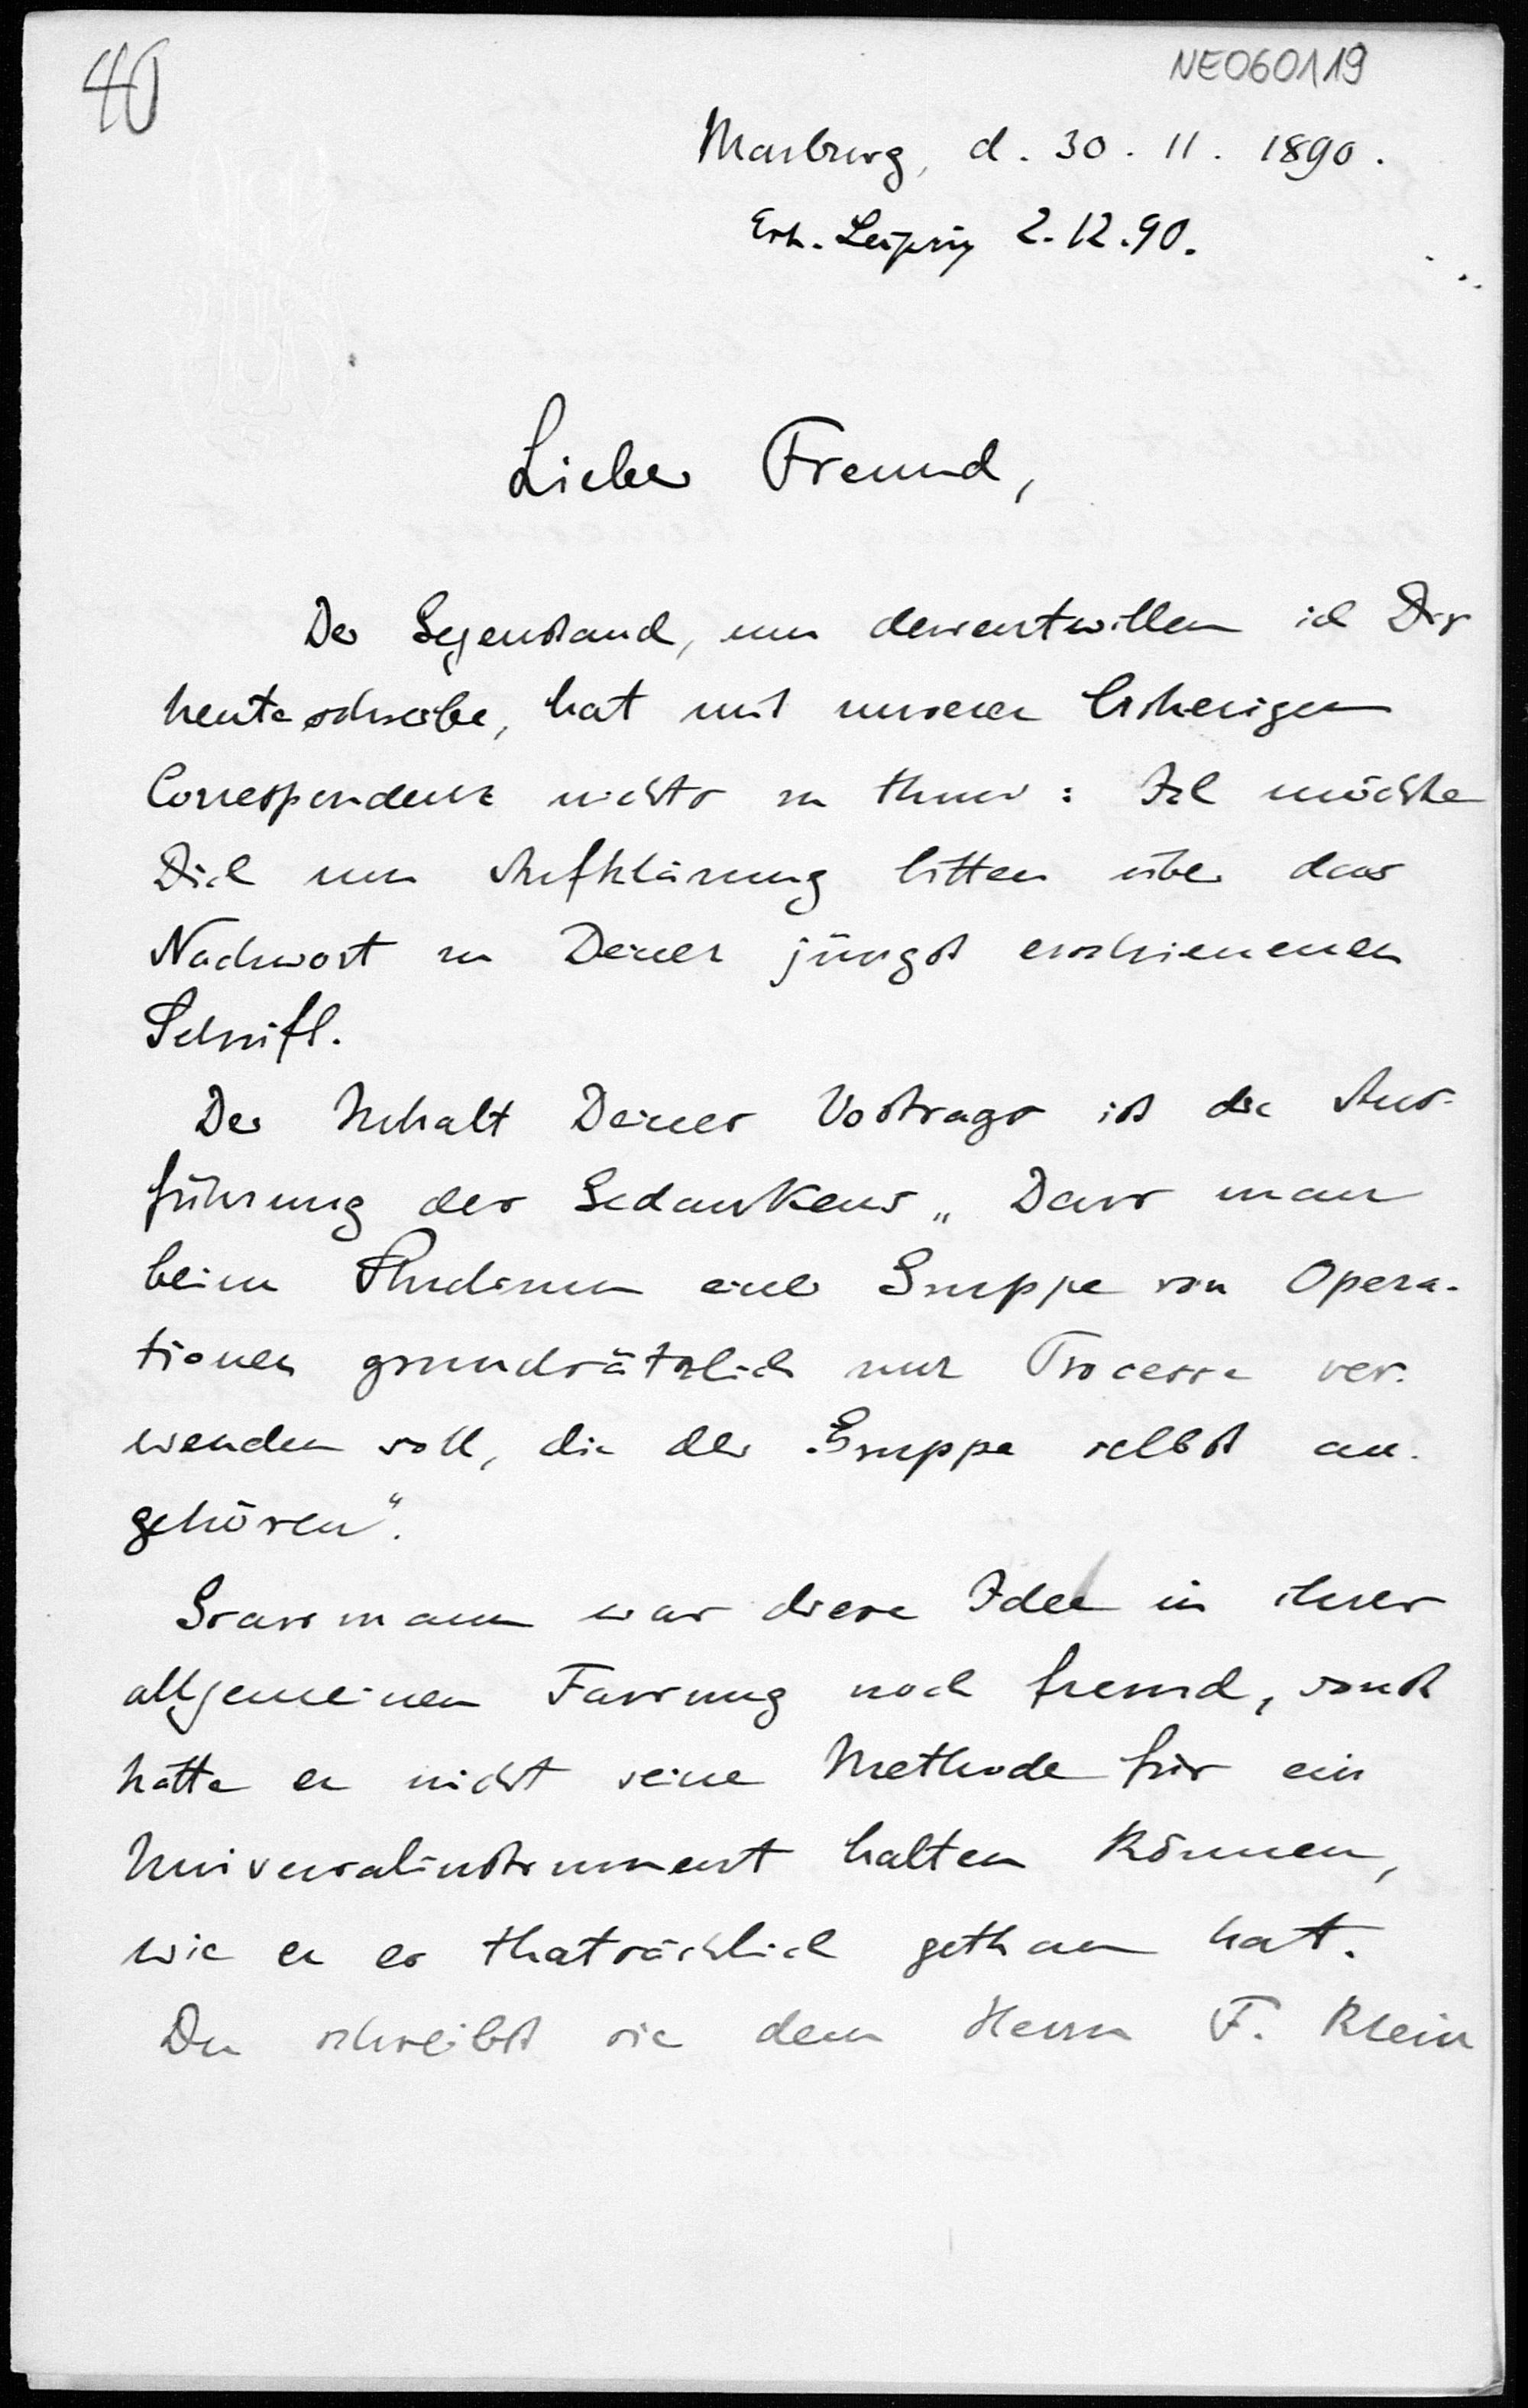 40
NE060119
Marburg, d. 30. 11. 1890.
Erh. Leipzig 2.12.90.
Lieber Freund,
Der Gegenstand, um dessentwillen ich Dir
heute schreibe, hat mit unserer bisherigen
Correspondenz nichts zu thun: Ich möchte
Dich um Aufklärung bitten über das
Nachwort zu Deiner jüngst erschienenen
Schrift.
Der Inhalt Deines Vortrags ist die Aus-
führung des Gedankens „Dass man
beim Studium einer Gruppe von Opera-
tionen grundsätzlich nur Processe ver-
wenden soll, die der Gruppe selbst an-
gehören“.
Grassmann war diese Idee in ihrer
allgemeinen Fassung noch fremd, sonst
hätte er nicht seine Methode für ein
Universalinstrument halten können,
wie er es thatsächlich gethan hat.
Du schreibst sie dem Herrn F. Klein